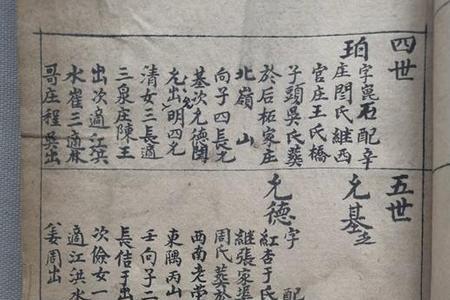 四世
珀
字崑石配辛
庄閆氏継西
官庄王氏橋
子頭吳氏葬
於后柘家庄
北嶺山
向子四長允
基次允德閆
出允明四允
清女三長適
三泉庄陳王
出次適江洪
水崔三適林
哥庄程吳出
五世
允基
允德
字 配
紅杏于氏
継張家
周氏葬於
西南老
東隅丙山
壬向子二
長佶于出
次儉女一
適江洪水
姜周出